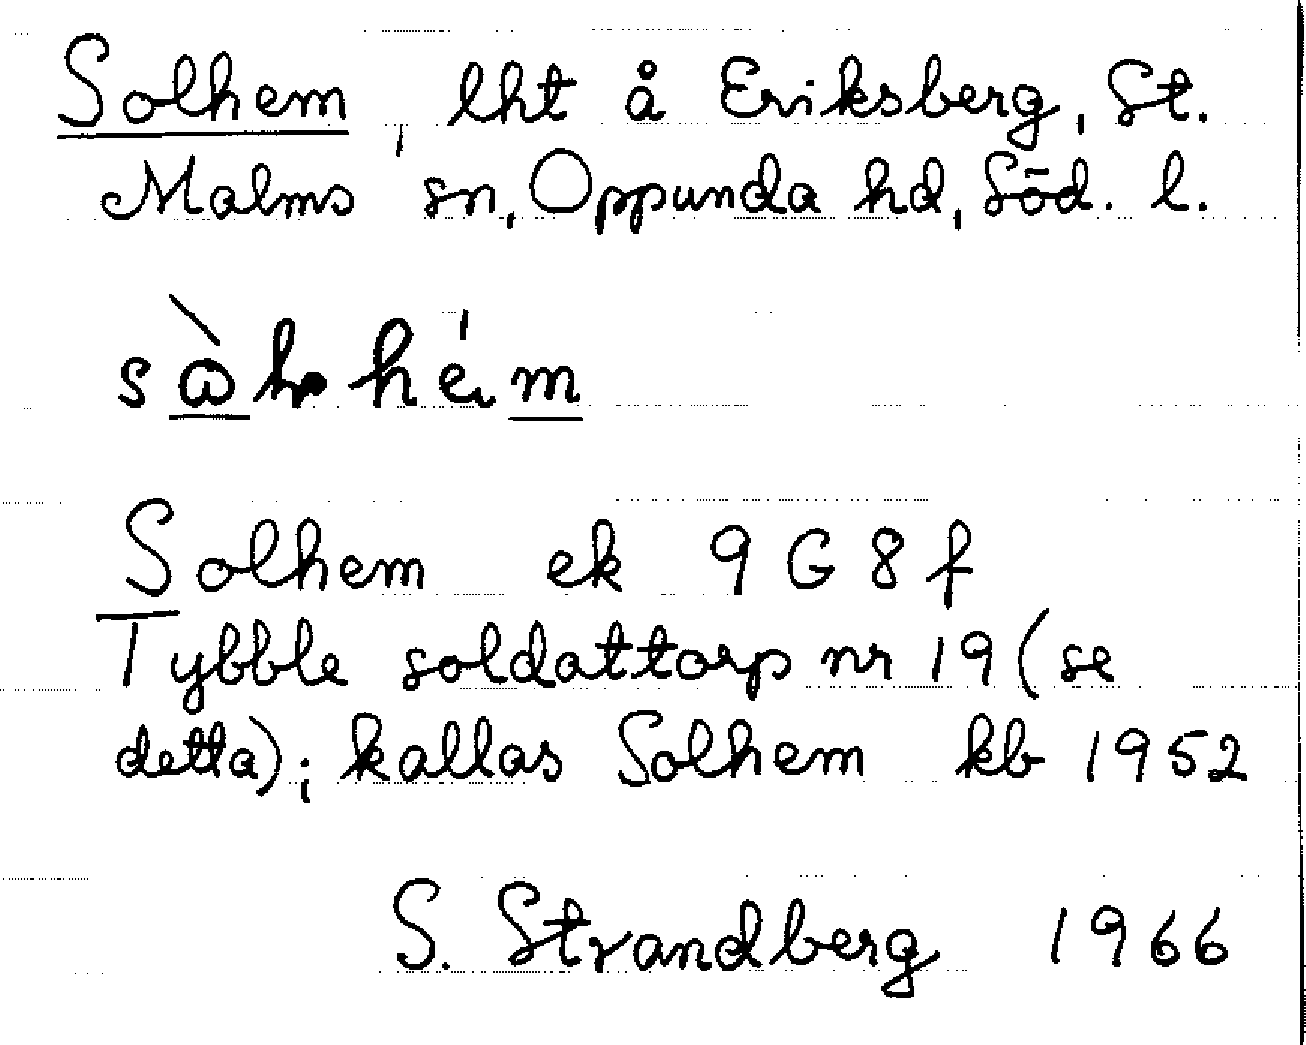 Solhem, lht å Eriksberg, St.
Malms sn, Oppunda hd, Söd. l.
Solhem ek 9G8f
Tybble soldattorp nr 19 (se
detta); kallas Solhem kb 1952
S. Strandberg 1966